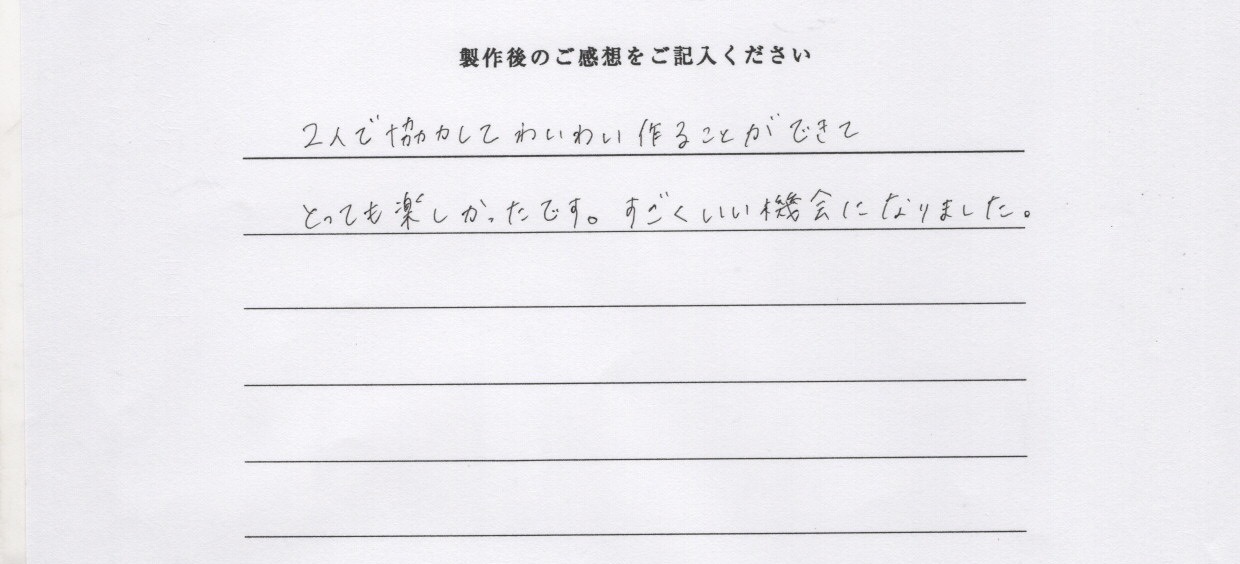 製作後のご感想をご記入ください
2人で協力してわいわい作ることができて
とっても楽しかったです。すごくいい機会になりました。